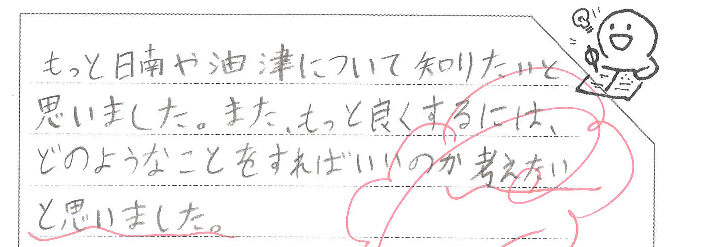 もっと日南や油津について知りたいと
思いました。また、もっと良くするには、
どのようなことをすればいいのか考えたい
と思いました。